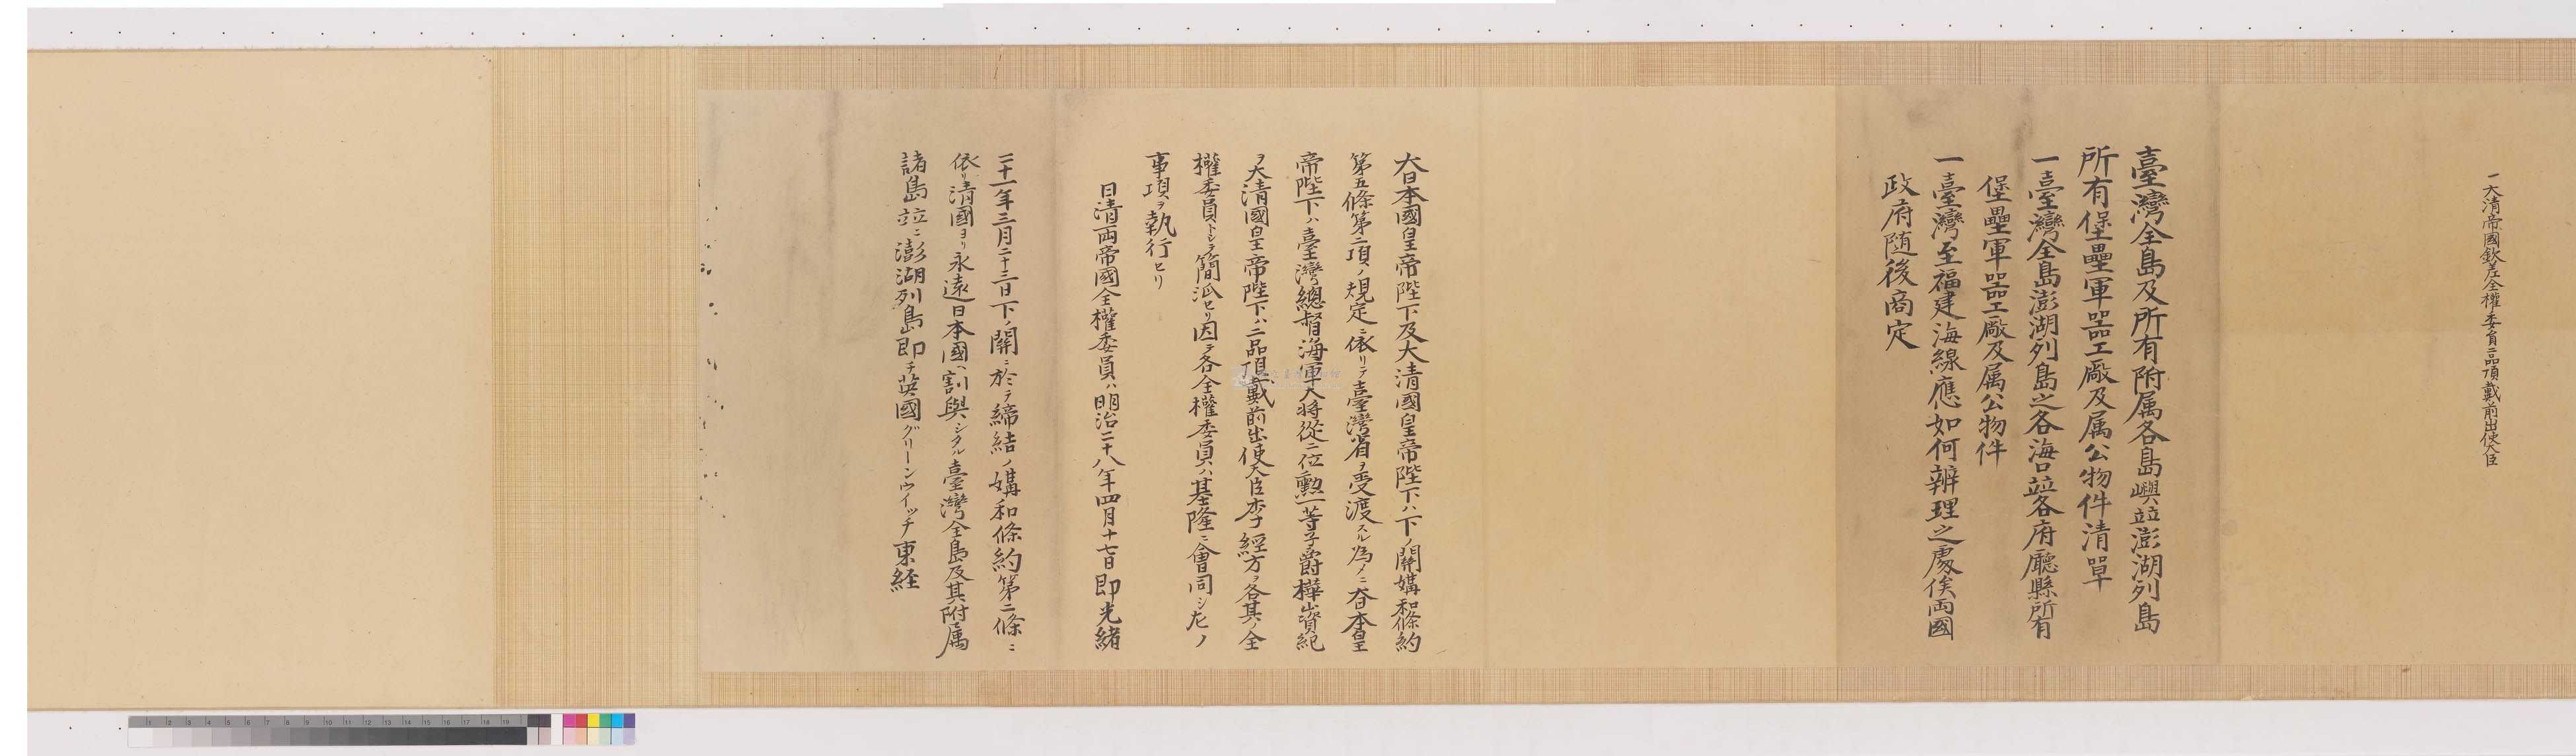 一大清帝國欽差全權委員二品頂戴前出使大臣
臺灣全島及所有附属各島嶼並澎湖列島
所有堡壘軍器工廠及属公物件清單
一臺灣全島澎湖列島之各海口並各府廳縣所有
堡壘軍器工廠及属公物件
一臺灣至福建海線應如何辨理之處俟両國
政府随後商定
大日本國皇帝陛下及大清國皇帝陛下ハ下ノ關媾和條約
第五條第二項ノ規定ニ依リテ臺灣省ヲ受渡スル為メニ大日本皇
帝陛下ハ臺灣總督海軍大将從二位勲一等子爵樺山資紀
ヲ大清國皇帝陛下ハ二品頂戴前出使大臣李經方ヲ各其ノ全
權委員トシテ簡派セリ因テ各全權委員ハ基隆ニ會同シ左ノ
事項ヲ執行セリ
日清両帝國全權委員ハ明治二十八年四月十七日即光緒
二十一年三月二十三日下ノ關ニ於テ締結ノ媾和條約第二條ニ
依リ清國ヨリ永遠日本國ヘ割與シタル臺灣全島及其附属
諸島並ニ澎湖列島即チ英國グリーンウイッチ東経